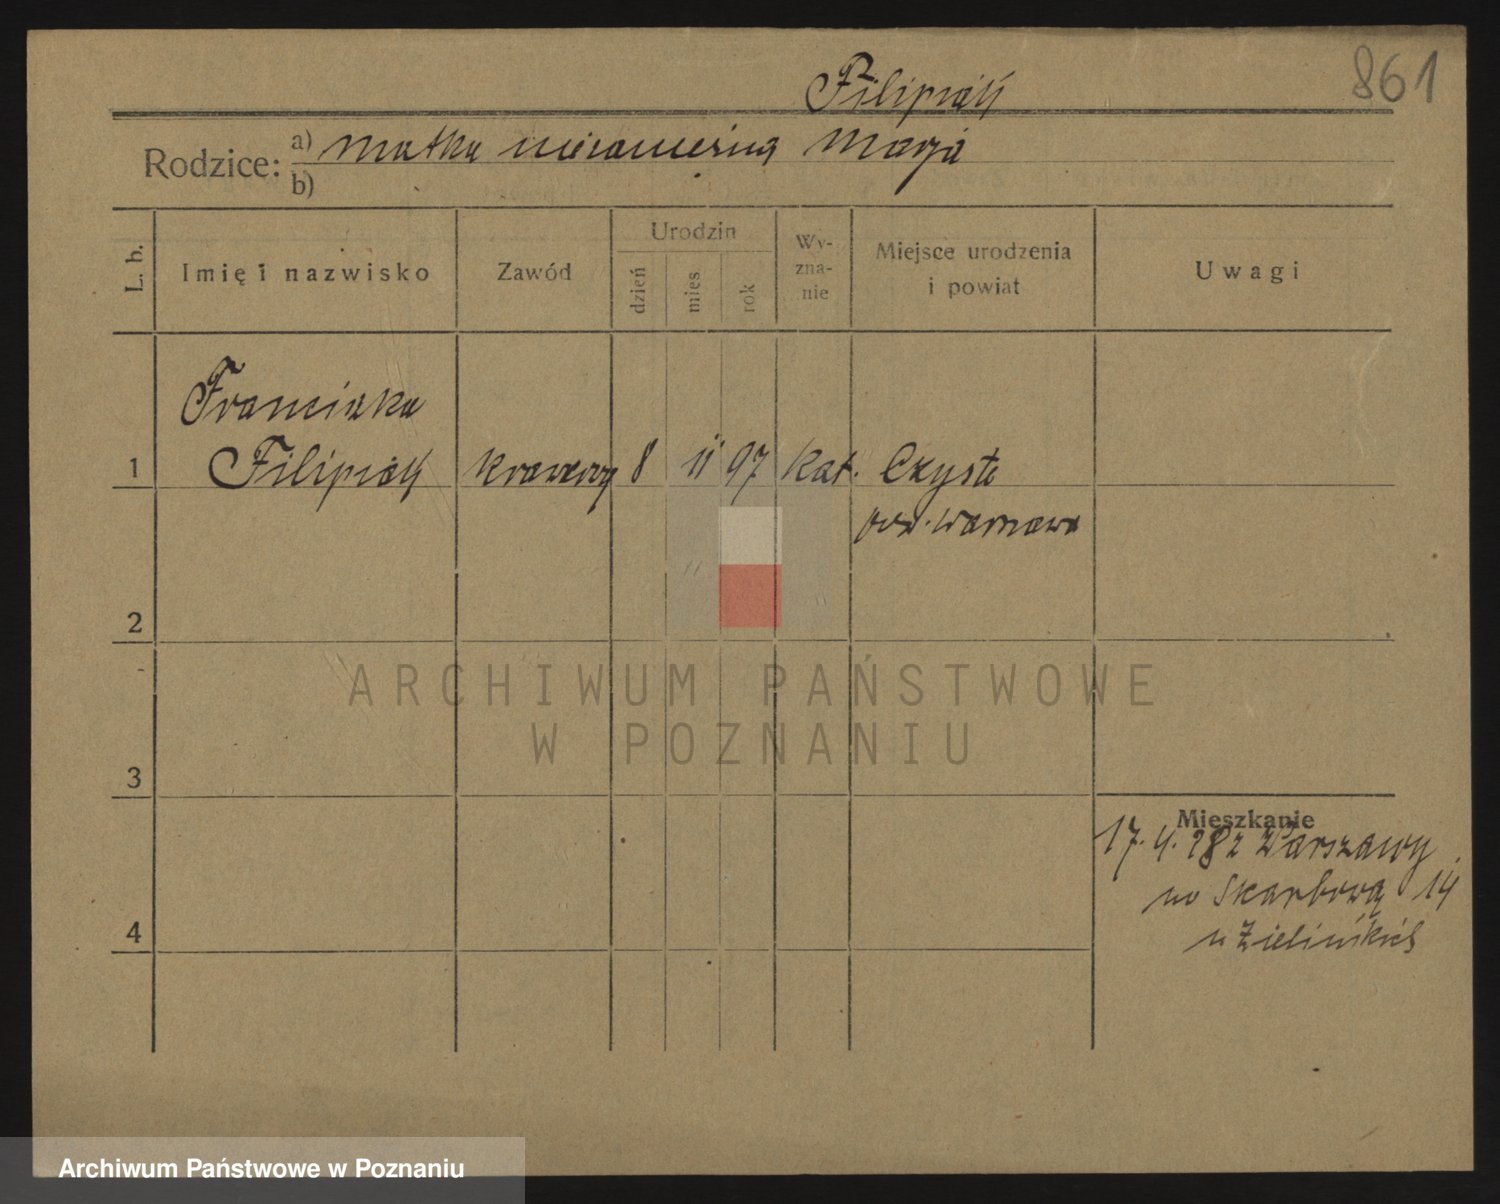 861
Filipiak
Rodzice: a) matka niezamężna Marja
b)
L. b.
Imię i nazwisko
Zawód
Urodzin
dzień
mies.
rok
Wy-
zna-
nie
Miejsce urodzenia
i powiat
Uwagi
Franciszka
1 Filipiak krawcowa 8 11 97 kat. Czyste
pow. Warszawa
2
ARCHIWUM PAŃSTWOWE
W POZNANIU
3
Mieszkanie
17. 4. 28 z Warszawy
na Skarbową 14
u Zielińskich
4
Archiwum Państwowe w Poznaniu